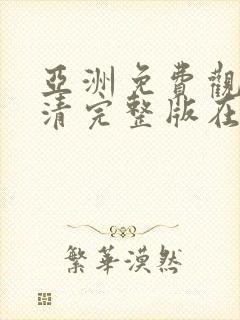 亞洲免費觀
清完整版在
繁華漠然